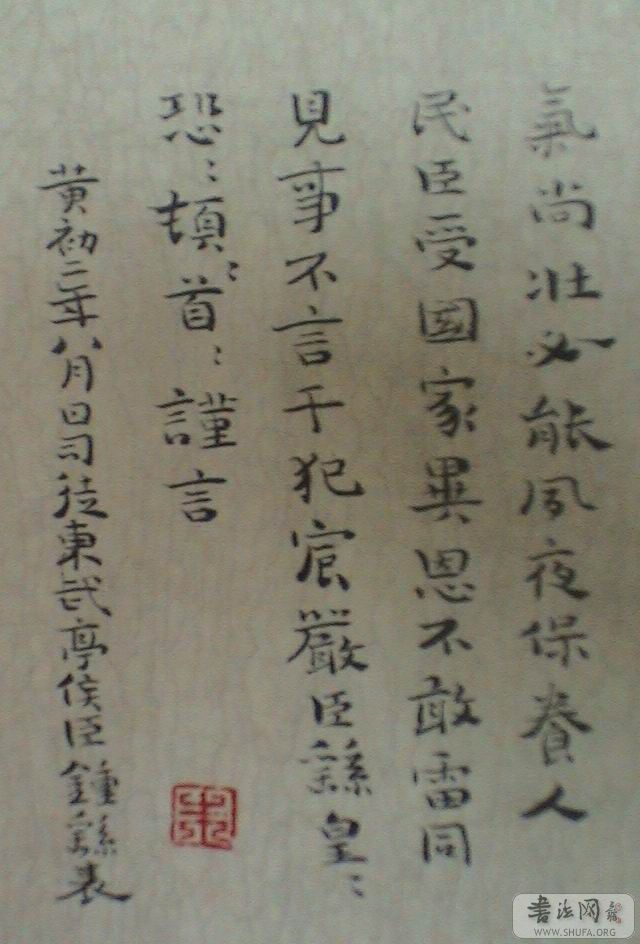 氣尚壮必能夙夜保養人
民臣受國家異恩不敢雷同
見事不言干犯宸嚴臣繇皇:
恐:頓:首:謹言
黃初二年八月日司徒東武亭侯臣鍾繇表
書法网
WWW.SHUFA.ORG